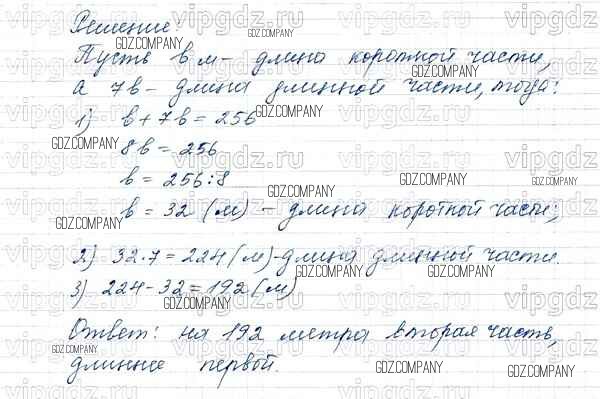 Решение:
Пусть в м - длина короткой части,
а 7в - длина длинной части, тогда:
1) в + 7в = 256
8в = 256
в = 256:8
в = 32 (м) - длина короткой части;
2) 32·7 = 224 (м) - длина длинной части.
3) 224 - 32 = 192 (м)
Ответ: на 192 метра вторая часть,
длиннее первой.